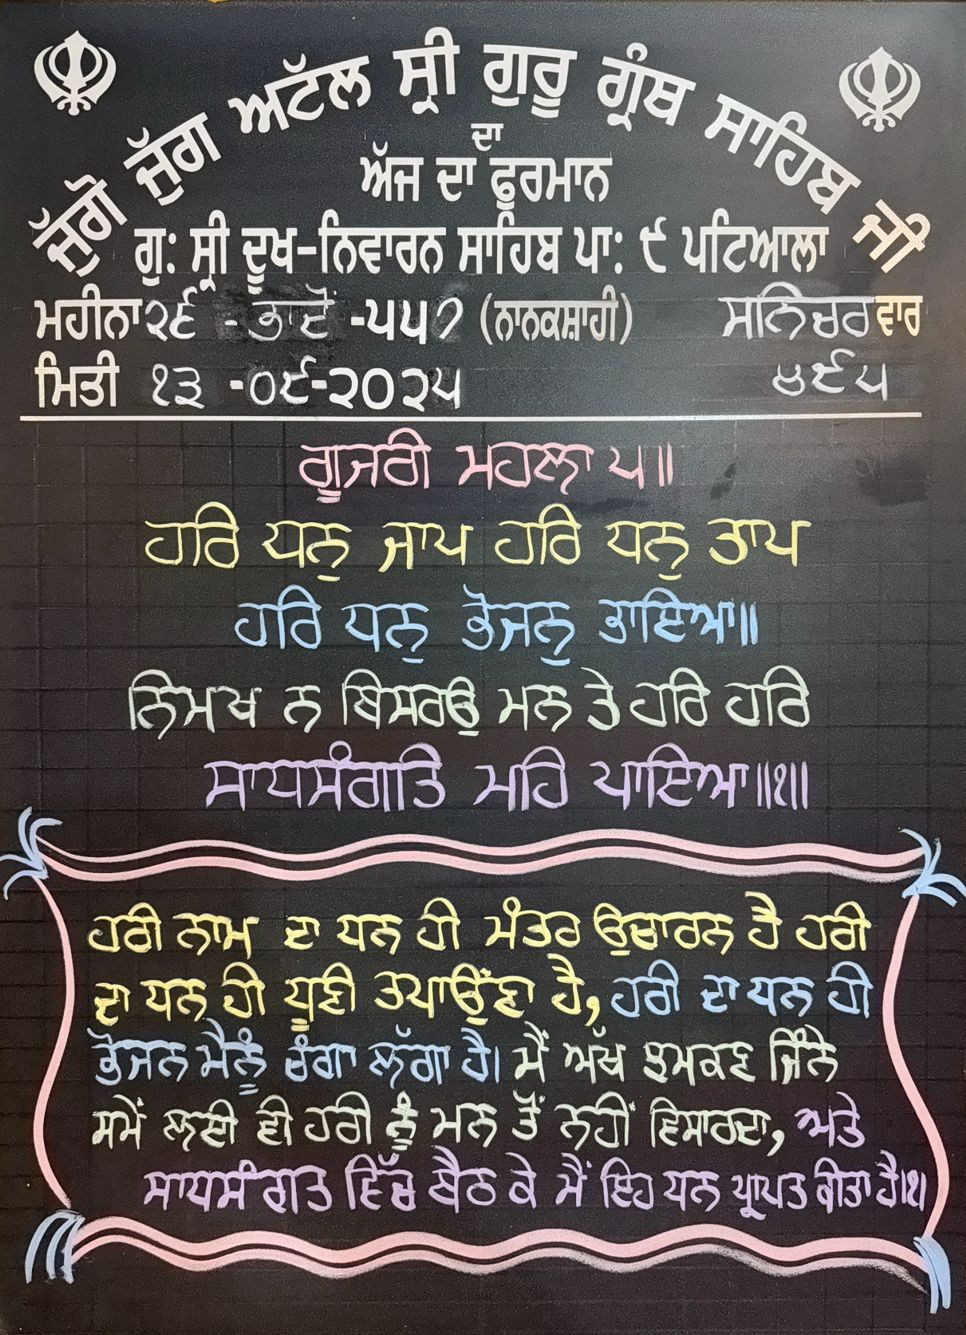 ਜੁੱਗੋ ਜੁੱਗ ਅਟੱਲ ਸ੍ਰੀ ਗੁਰੂ ਗ੍ਰੰਥ ਸਾਹਿਬ ਜੀ
ਦਾ
ਅੱਜ ਦਾ ਫੁਰਮਾਨ
ਗੁ: ਸ੍ਰੀ ਦੂਖ-ਨਿਵਾਰਨ ਸਾਹਿਬ ਪਾ: ੯ ਪਟਿਆਲਾ
ਮਹੀਨਾ ੨੯ - ਭਾਦੋਂ -੫੫੭ (ਨਾਨਕਸ਼ਾਹੀ) ਸਨਿਚਰਵਾਰ
ਮਿਤੀ ੧੩ -੦੯-੨੦੨੫ ੪੯੫
ਗੂਜਰੀ ਮਹਲਾ ੫॥
ਹਰਿ ਧਨੁ ਜਾਪ ਹਰਿ ਧਨੁ ਤਾਪ
ਹਰਿ ਧਨੁ ਭੋਜਨੁ ਭਾਇਆ॥
ਨਿਮਖ ਨ ਬਿਸਰਉ ਮਨ ਤੇ ਹਰਿ ਹਰਿ
ਸਾਧਸੰਗਤਿ ਮਹਿ ਪਾਇਆ॥੧॥
ਹਰੀ ਨਾਮ ਦਾ ਧਨ ਹੀ ਮੰਤਰ ਉਚਾਰਨ ਹੈ ਹਰੀ
ਦਾ ਧਨ ਹੀ ਧੂਣੀ ਤਪਾਉਂਣਾ ਹੈ, ਹਰੀ ਦਾ ਧਨ ਹੀ
ਭੋਜਨ ਮੈਨੂੰ ਚੰਗਾ ਲੱਗਾ ਹੈ। ਮੈਂ ਅੱਖ ਝਮਕਣ ਜਿੰਨੇ
ਸਮੇਂ ਲਈ ਵੀ ਹਰੀ ਨੂੰ ਮਨ ਤੋਂ ਨਹੀਂ ਵਿਸਾਰਦਾ, ਅਤੇ
ਸਾਧਸੰਗਤ ਵਿੱਚ ਬੈਠ ਕੇ ਮੈਂ ਇਹ ਧਨ ਪ੍ਰਾਪਤ ਕੀਤਾ ਹੈ।੧।